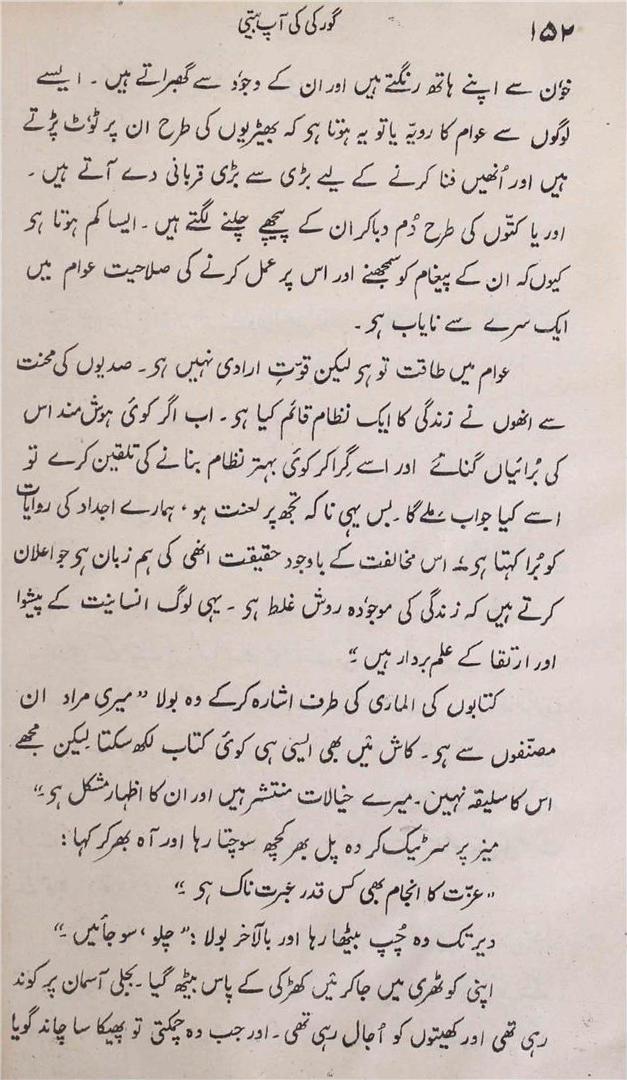 ۱۵۲
گورکی کی آپ بیتی
خوٗن سے اپنے ہاتھ رنگتے ہیں اور ان کے وجوٗد سے گھبراتے ہیں ۔ ایسے
لوگوں سے عوام کا رویّہ یا تو یہ ہوتا ہو کہ بھیڑیوں کی طرح ان پر ٹوٗٹ پڑتے
ہیں اور اُنھیں فنا کرنے کے لیے بڑی سے بڑی قربانی دے آتے ہیں ۔
اور یا کتّوں کی طرح دُم دبا کر ان کے پیچھے چلنے لگتے ہیں ۔ ایسا کم ہوتا ہو
کیوں کہ ان کے پیغام کو سمجھنے اور اس پر عمل کرنے کی صلاحیت عوام میں
ایک سرے سے نایاب ہو ۔
عوام میں طاقت تو ہو لیکن قوتِ ارادی نہیں ہو ۔ صدیوں کی محنت
سے انھوں نے زندگی کا ایک نظام قائم کیا ہو ۔ اب اگر کوئ ہوش مند اس
کی بُرائیاں گنائے اور اسے گِرا کر کوئ بہتر نظام بنانے کی تلقین کرے تو
اسے کیا جواب ملے گا ۔ بس یہی نا کہ تجھ پر لعنت ہو ، ہمارے اجداد کی روایات
کو بُرا کہتا ہو ۔ اس مخالفت کے باوجود حقیقت انھی کی ہم زبان ہو جو اعلان
کرتے ہیں کہ زندگی کی موجوٗدہ روش غلط ہو ۔ یہی لوگ انسانیت کے پیشوا
اور ارتقا کے علم بردار ہیں ۔“
کتابوں کی الماری کی طرف اشارہ کرکے وہ بولا ”میری مراد ان
مصنّفوں سے ہو ۔ کاش میں بھی ایسی ہی کوئ کتاب لکھ سکتا لیکن مجھے
اس کا سلیقہ نہیں ۔ میرے خیالات منتشر ہیں اور ان کا اظہار مشکل ہو ۔“
میز پر سر ٹیک کر وہ پل بھر کچھ سوچتا رہا اور آہ بھر کر کہا :
”عزّت کا انجام بھی کس قدر عبرت ناک ہو ۔“
دیر تک وہ چُپ بیٹھا رہا اور بالآخر بولا : ”چلو ، سو جائیں ۔“
اپنی کوٹھری میں جا کر میں کھڑکی کے پاس بیٹھ گیا ۔ بجلی آسمان پر کوند
رہی تھی اور کھیتوں کو اُجال رہی تھی ۔ اور جب وہ چمکتی تو پھیکا سا چاند گویا